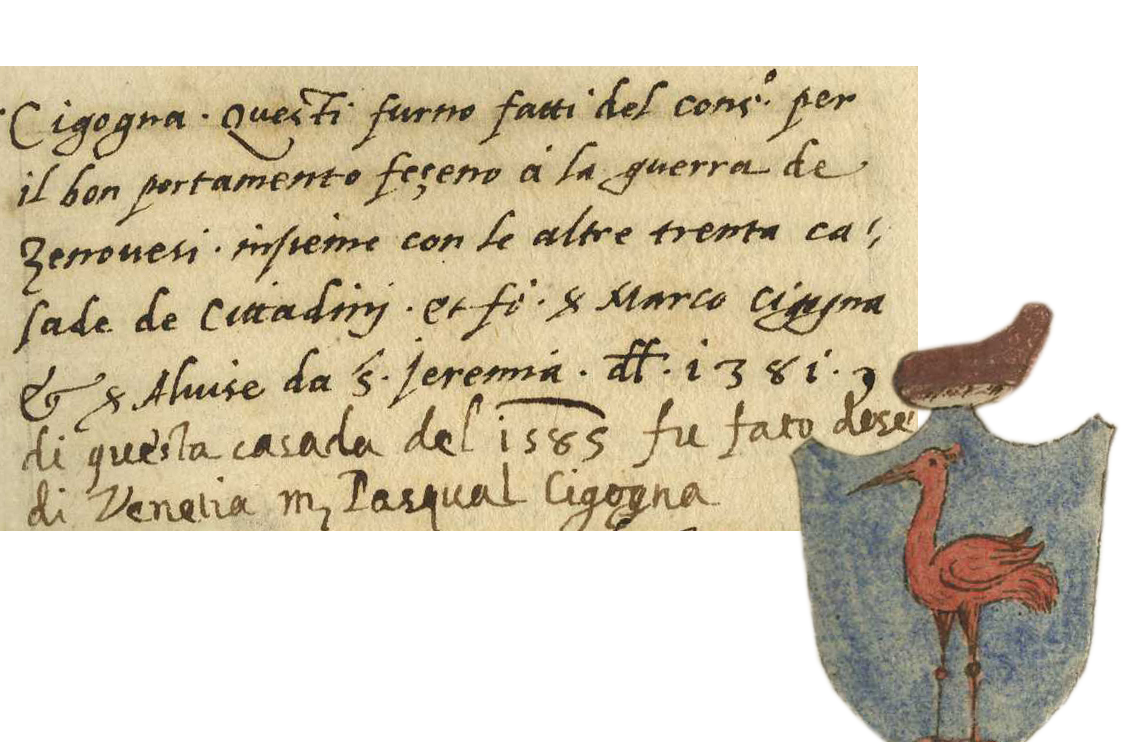 Cigogna. Questi furno fatti del cons.º per
il bon portamento feçeno à la guerra de
Zenouesi. insieme con le altre trenta ca
sade de Cittadinj. et fò. Marco Cigogna
& Aluise da S. Jeremia. 1381.
di questa casada del 1585 fu fato dose
di Venetia Pasqual Cigogna